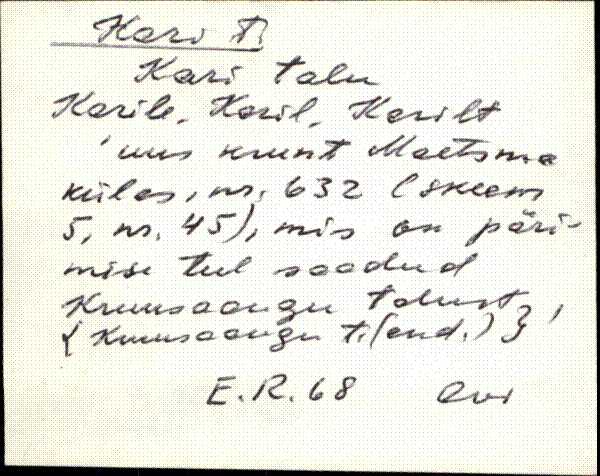 Kari t.
Kari talu
Karile, Karil, Karilt
'uus krunt Maetsma
külas, nr. 632 (skeem
5, nr. 45), mis on päri-
mise teel saadud
Kruusaaugu talust,
{Kruusaaugu t. (end.)}'
E.R. 68